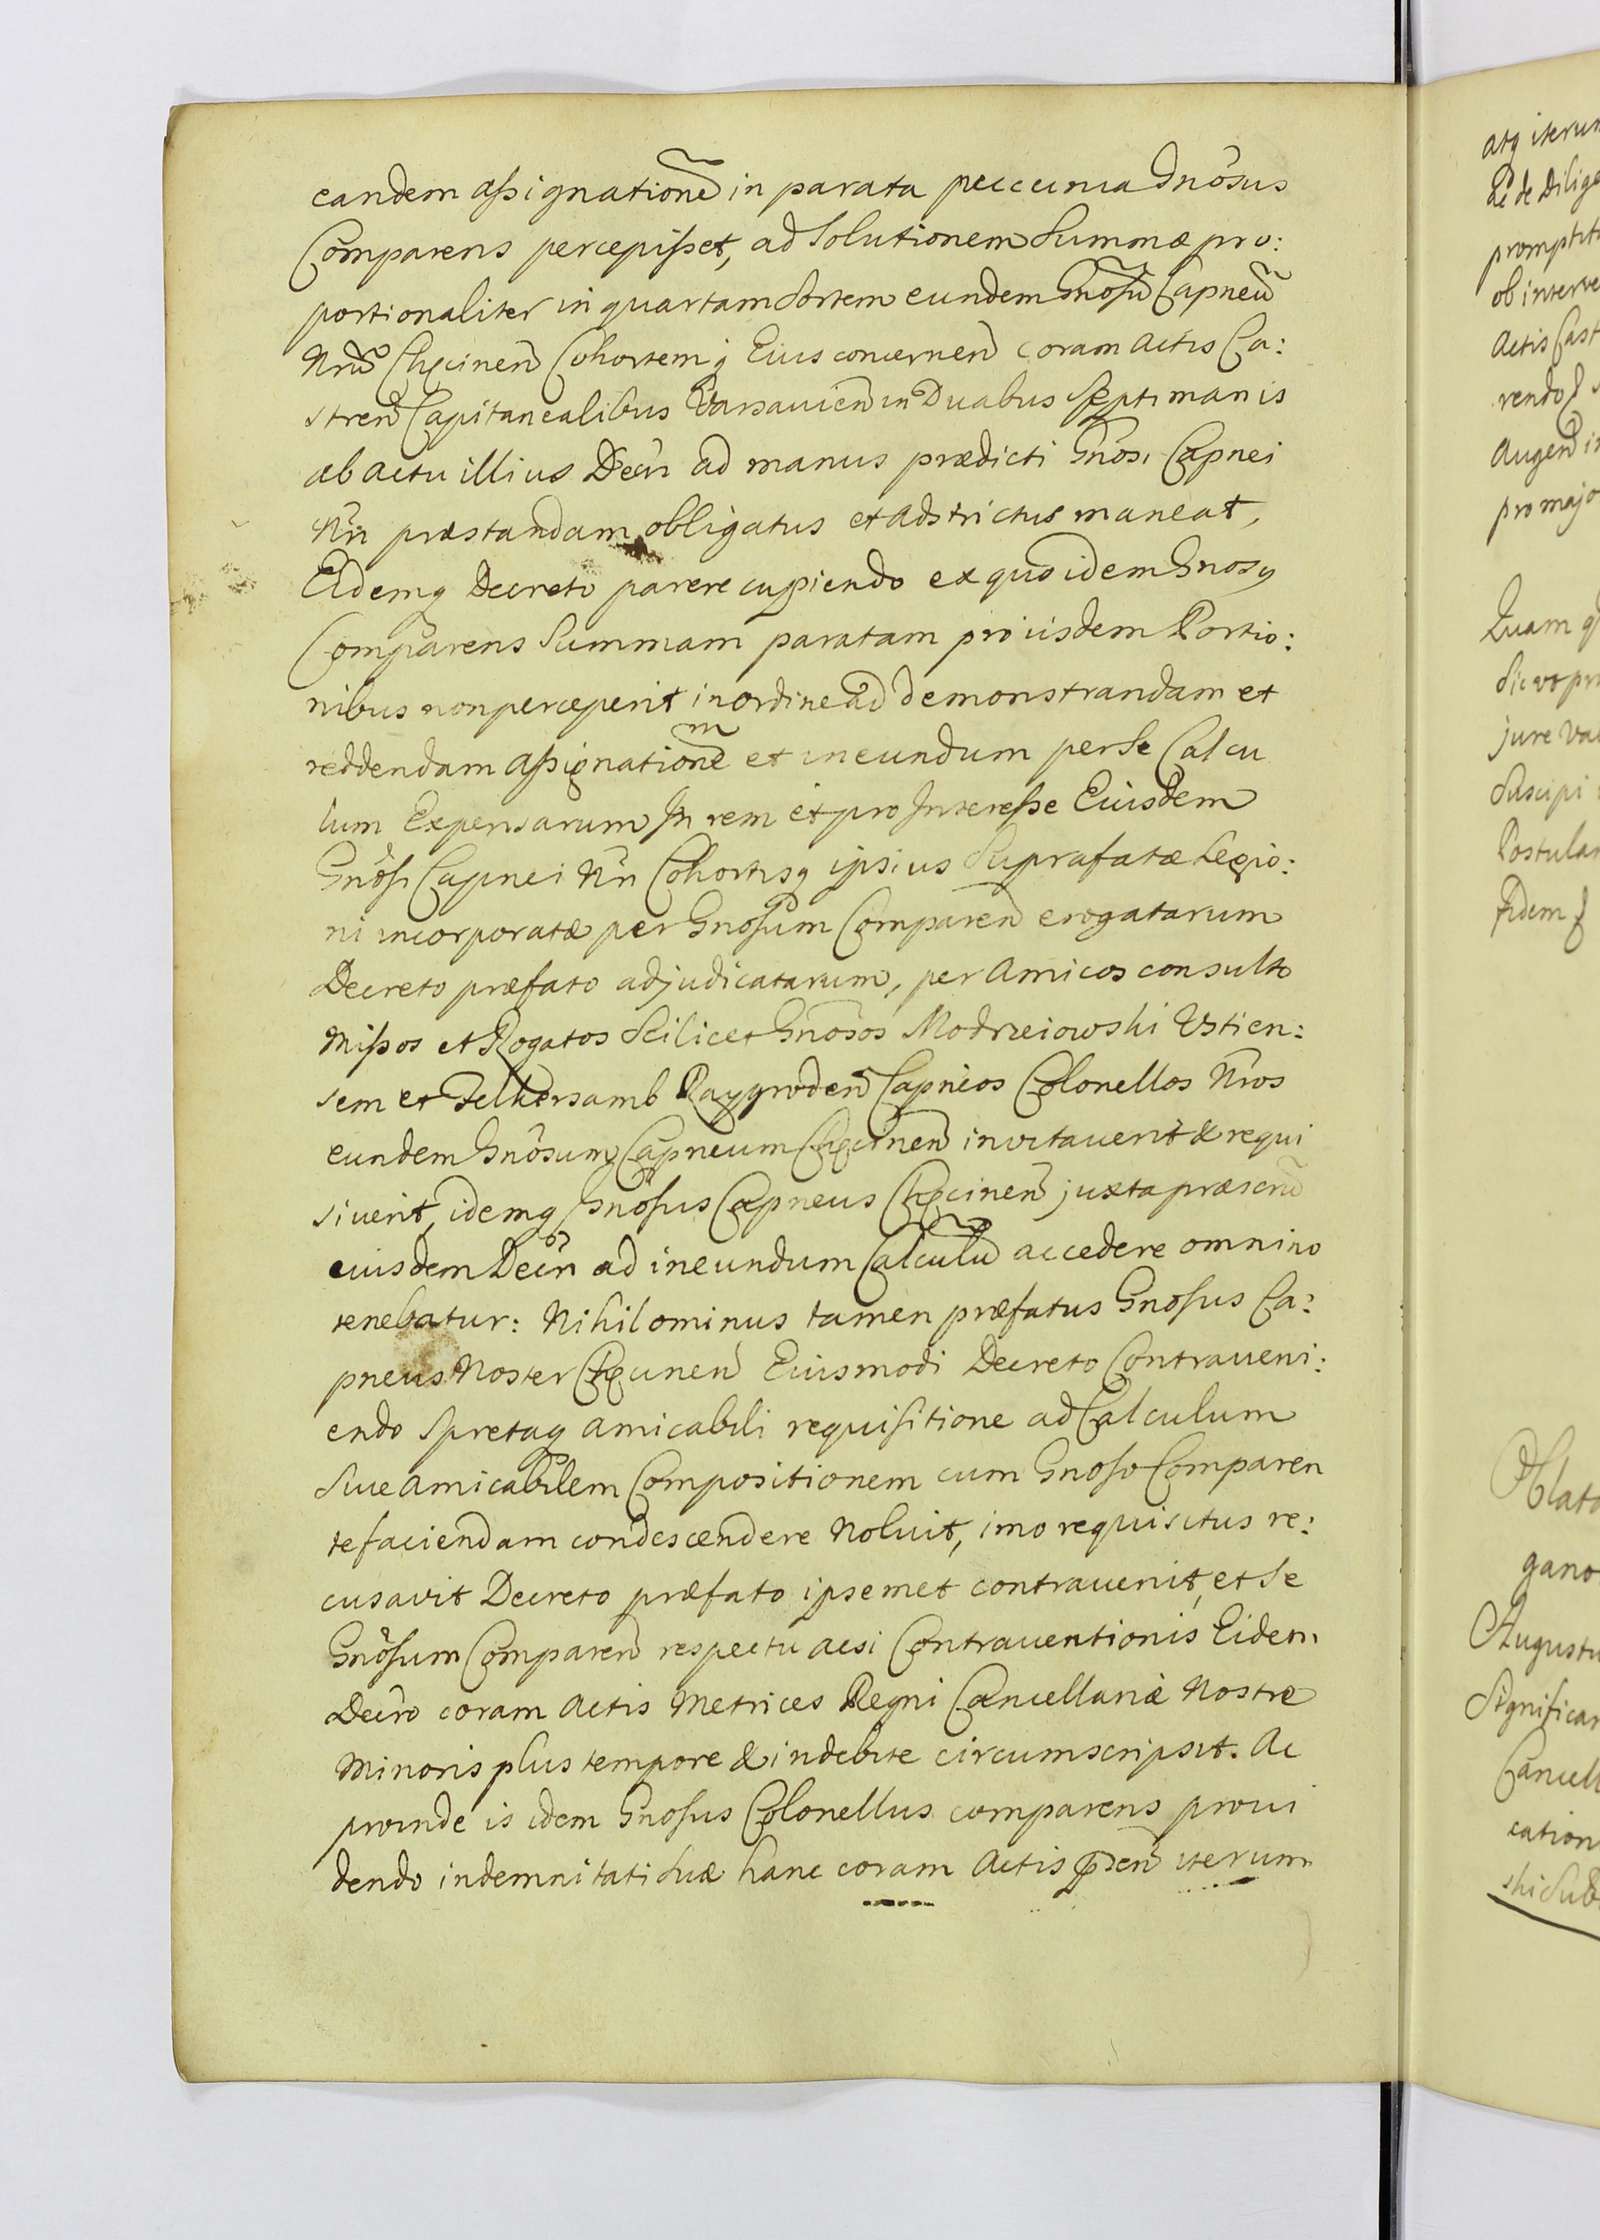 eandem assignatione in parata peccunia Gnosus
Comparens percepisset, ad Solutionem Summæ pro:
portionaliter in quartam Sortem eundem Gnosu Capneu
Nru Chęcinen Cohortemq Eius concernen coram Actis Ca:
stren Capitanealibus Varsavien in Duabus Septimanis
ab actu illius Decri ad manus prædicti Gnosi Capnei
Nri præstandam obligatus et adstrictus maneat,
Eidemq Decreto parere cupiendo ex quo idem Gnosq
Comparens Summam paratam pro iisdem Portio:
nibus non perceperit in ordine ad demonstrandam et
reddendam assignatione et ineundum per se Calcu
lum Expensarum In rem et pro Interesse Eiusdem
Gnosi Capnei Nri Cohortisq ipsius Suprafatæ Legio:
ni incorporatæ per Gnosum Comparen erogatarum
Decreto præfato adjudicatarum, per Amicos consulto
Missos et Rogatos Scilicet Gnosos Modrzeiowski Ustien:
sem et Felkersamb Raygroden Capneos Colonellos Nros
eundem Gnosum Capneum Chęcinen invitaverit & requi
siverit, idemq Gnosus Capneus Chęcinen juxta præscru
eiusdem Decri ad ineundum Calculu accedere omnino
tenebatur: Nihilominus tamen præfatus Gnosus Ca:
pneus Noster Chęcinen Eiusmodi Decreto Contraveni:
endo Spretaq amicabili requisitione ad Calculum
Sive amicabilem Compositionem cum Gnoso Comparen
te faciendam condescendere Noluit, imo requisitus re:
cusavit Decreto præfato ipsemet contravenit, et Se
Gnosum Comparen respectu acsi Contraventionis Eidem
Decro coram Actis Metrices Regni Cancellariæ Nostræ
Minoris plus tempore & indebite circumscripsit. Ac
proinde is idem Gnosus Colonellus comparens provi
dendo indemnitati Suæ hanc coram Actis pnten iterum
atq iterum
promptit
ob interve
Actis Cast
rendo
Augen in
pro majo
Quam
jure
Suscipi
Postula
fidem
Oblata
gano
Augustu
Significa
Cancell
cation
ski Sub